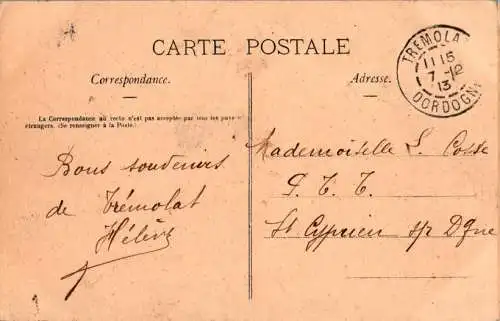 CARTE POSTALE
Correspondance.
Adresse.
La Correspondance au recto n'est pas acceptée par tous les pays
étrangers. (Se renseigner à la Poste.)
TREMOLAT
11 15
7 -12
13
DORDOGNE
Bons souvenirs
de Trémolat
Hélène
Mademoiselle L. Cosse
P. T. T.
St Cyprien s/ Dgne